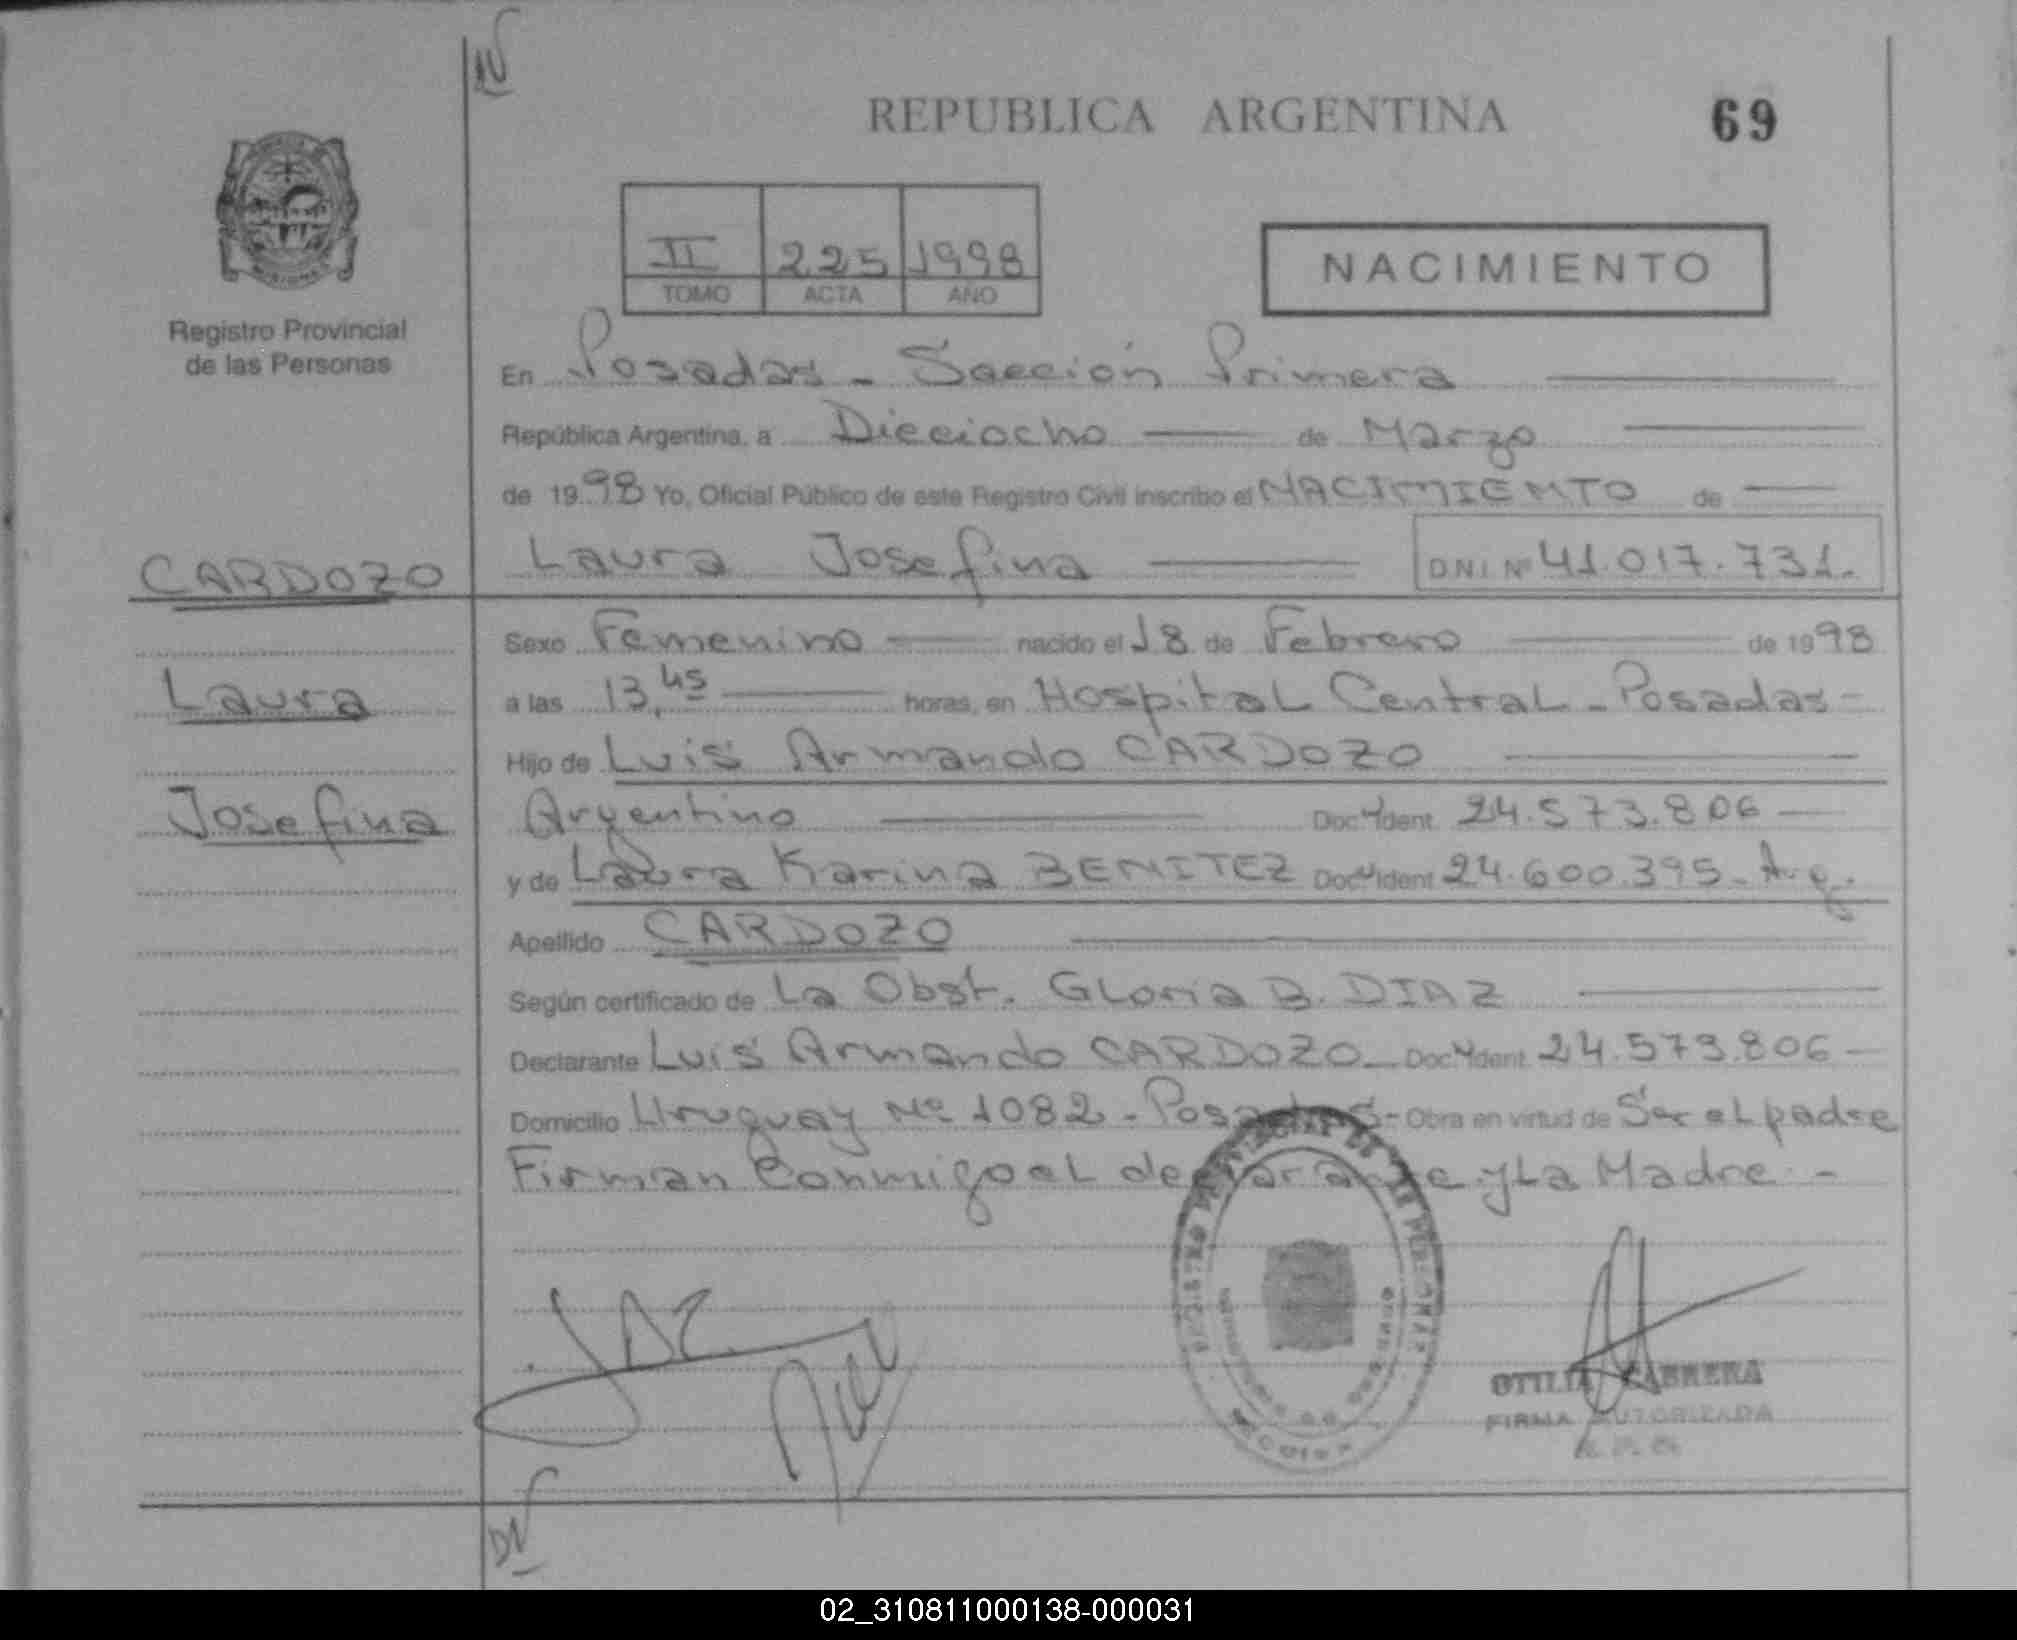 DV
REPUBLICA ARGENTINA
69
II 225 1998
TOMO ACTA AÑO
NACIMIENTO
Registro Provincial
de las Personas
En Posadas - Sección Primera
República Argentina, a Dieciocho de Marzo
de 1998 Yo, Oficial Público de este Registro Civil inscribo el NACIMIENTO de
CARDOZO
Laura Josefina
D.N.I. Nº 41.017.731.-
Sexo Femenino nacido el 18 de Febrero de 1998
Laura
a las 13,45 horas, en Hospital Central - Posadas -
Hijo de Luis Armando CARDOZO
Josefina
Argentino Doc Ydent. 24.573.806 -
y de Laura Karina BENITEZ Doc Ident 24.600.395 - Arg.
Apellido CARDOZO
Según certificado de La Obst. Gloria B. DIAZ
Declarante Luis Armando CARDOZO - Doc Ydent. 24.573.806 -
Domicilio Uruguay Nº 1082 - Posadas - Obra en virtud de Ser el padre
Firman Conmigo el declarante y La Madre. -
OTILIA CABRERA
FIRMA AUTORIZADA
DV
02_310811000138-000031